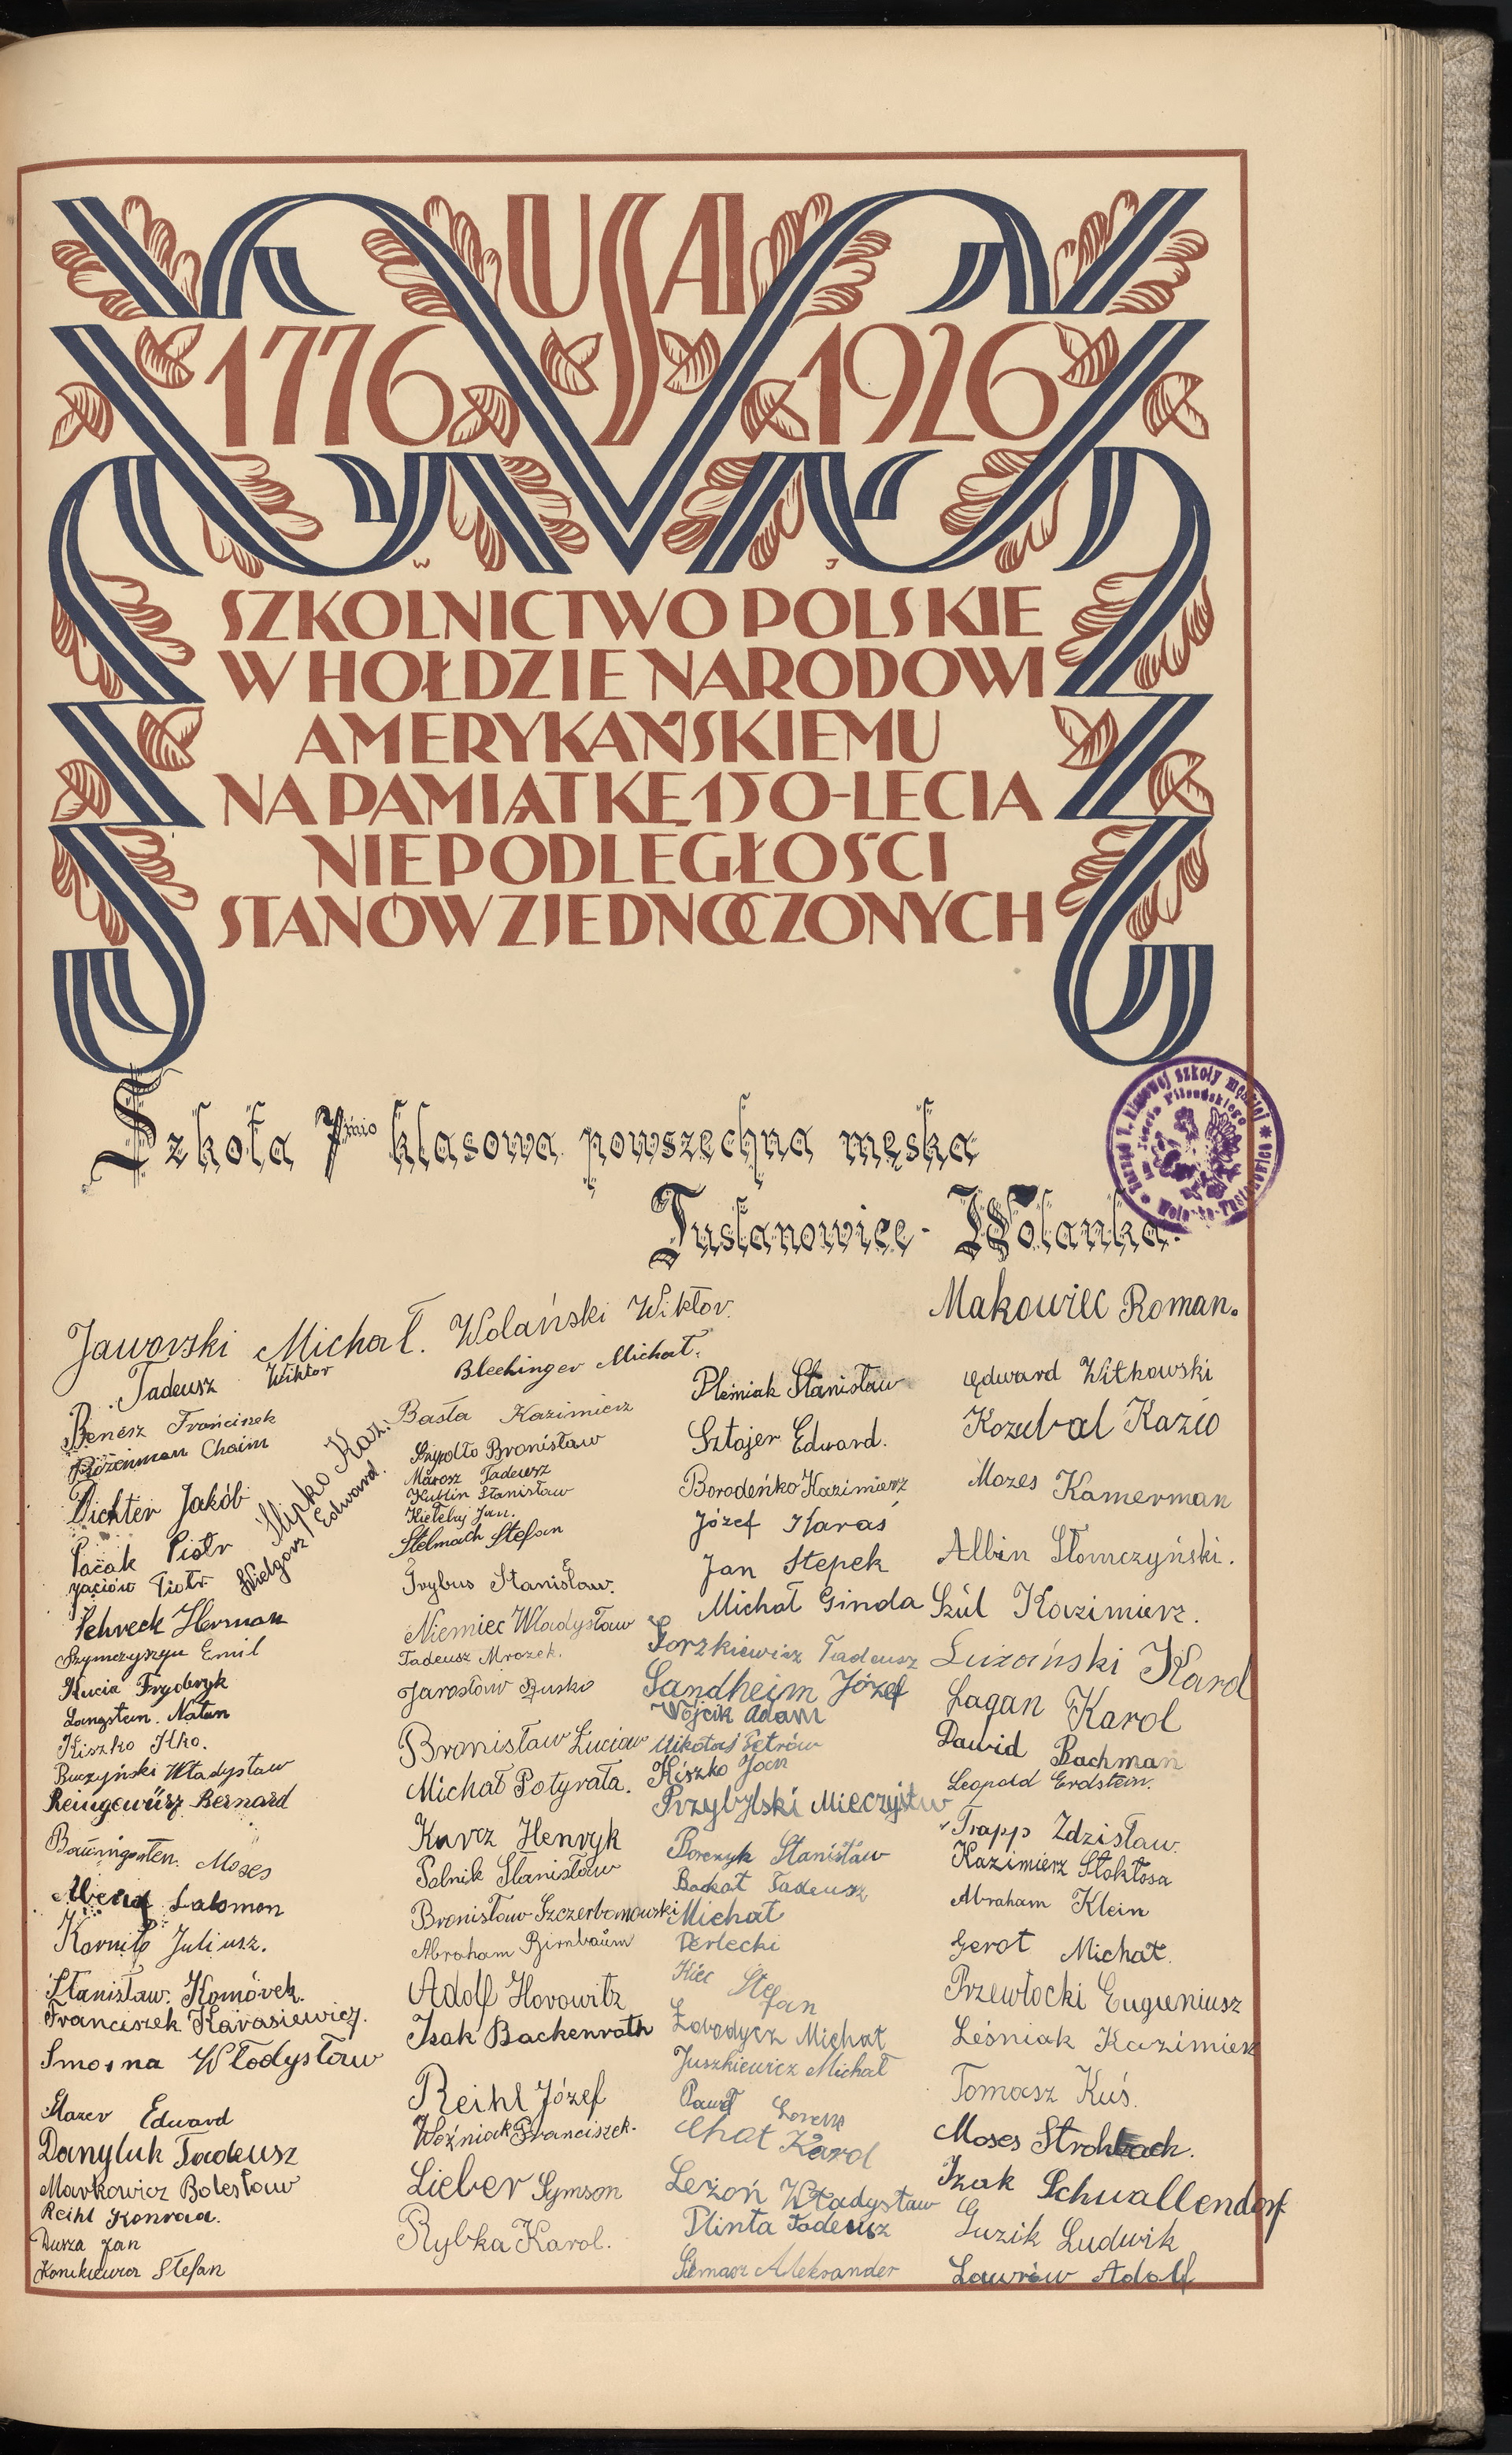 USA
1776 1926
W J
SZKOLNICTWO POLSKIE
W HOŁDZIE NARODOWI
AMERYKAŃSKIEMU
NA PAMIĄTKĘ 150-LECIA
NIEPODLEGŁOŚCI
STANÓW ZJEDNOCZONYCH
Szkoła 7mio klasowa powszechna męska
Tustanowice - Wolanka.
Jaworski Michał. Wolański Wiktor.
Tadeusz Wiktor
Blechinger Michał.
Benesz Franciszek
Rozenman Chaim
Dichter Jakób
Slipko Kaz.
Wielgorz Edward.
Pacak Piotr
Jaciów Piotr
Schreck Herman
Szymczyszyn Emil
Kucia Fryderyk
Langstein. Natan
Kiszko Ilko.
Buczyński Władysław
Reingewürz Bernard
Baumgarten. Moses
Abend Salomon
Korniło Juliusz.
Stanisław. Komórek.
Franciszek Karasiewicz.
Smosna Włodysław
Mazer Edward
Danyluk Tadeusz
Markowicz Bolesław
Reihl Konrad.
Dusza Jan
Stefan
Basta Kazimierz
Szydło Bronisław
Marosz Tadeusz
Kublin Stanisław
Kiełeby Jan.
Stelmach Stefan
Grybus Stanisław.
Niemiec Władysław
Tadeusz Mrozek.
Jarosław Rusko
Bronisław Luciow
Michał Potyrała.
Karcz Henryk
Polnik Stanisław
Bronisław Szczerbanowski
Abraham Birnbaum
Adolf Horowitz
Isak Backenroth
Reihl Józef
Woźniak Franciszek.
Lieber Symson
Rybka Karol.
Pleśniak Stanisław
Sztajer Edward.
Borodeńko Kazimierz
Józef Haraś
Jan Stepek
Michał Ginda
Gorzkiewicz Tadeusz
Sandheim Józef
Wójcik Adam
Mikołaj Petrów
Kiszko Jan
Przybylski Mieczysław
Porczyk Stanisław
Backat Tadeusz
Michał
Derlecki
Kiec Stefan
Zabadycz Michał
Juszkiewicz Michał
Paweł
Chat Karol
Leżoń Władysław
Plinta Tadeusz
Aleksander
Makowiec Roman.
Edward Witkowski
Kozubal Kazio
Mozes Kamerman
Albin Słomczyński.
Szul Kazimierz.
Luzański Karol
Łagan Karol
Dawid Bachman
Leopold Erdstein.
Trapp Zdzisław.
Kazimierz Stokłosa
Abraham Klein
Gerot Michał.
Przewłocki Eugieniusz
Leśniak Kazimierz
Tomasz Kuś.
Moses Strohbach.
Izak Schwallendorf
Guzik Ludwik
Lawrów Adolf